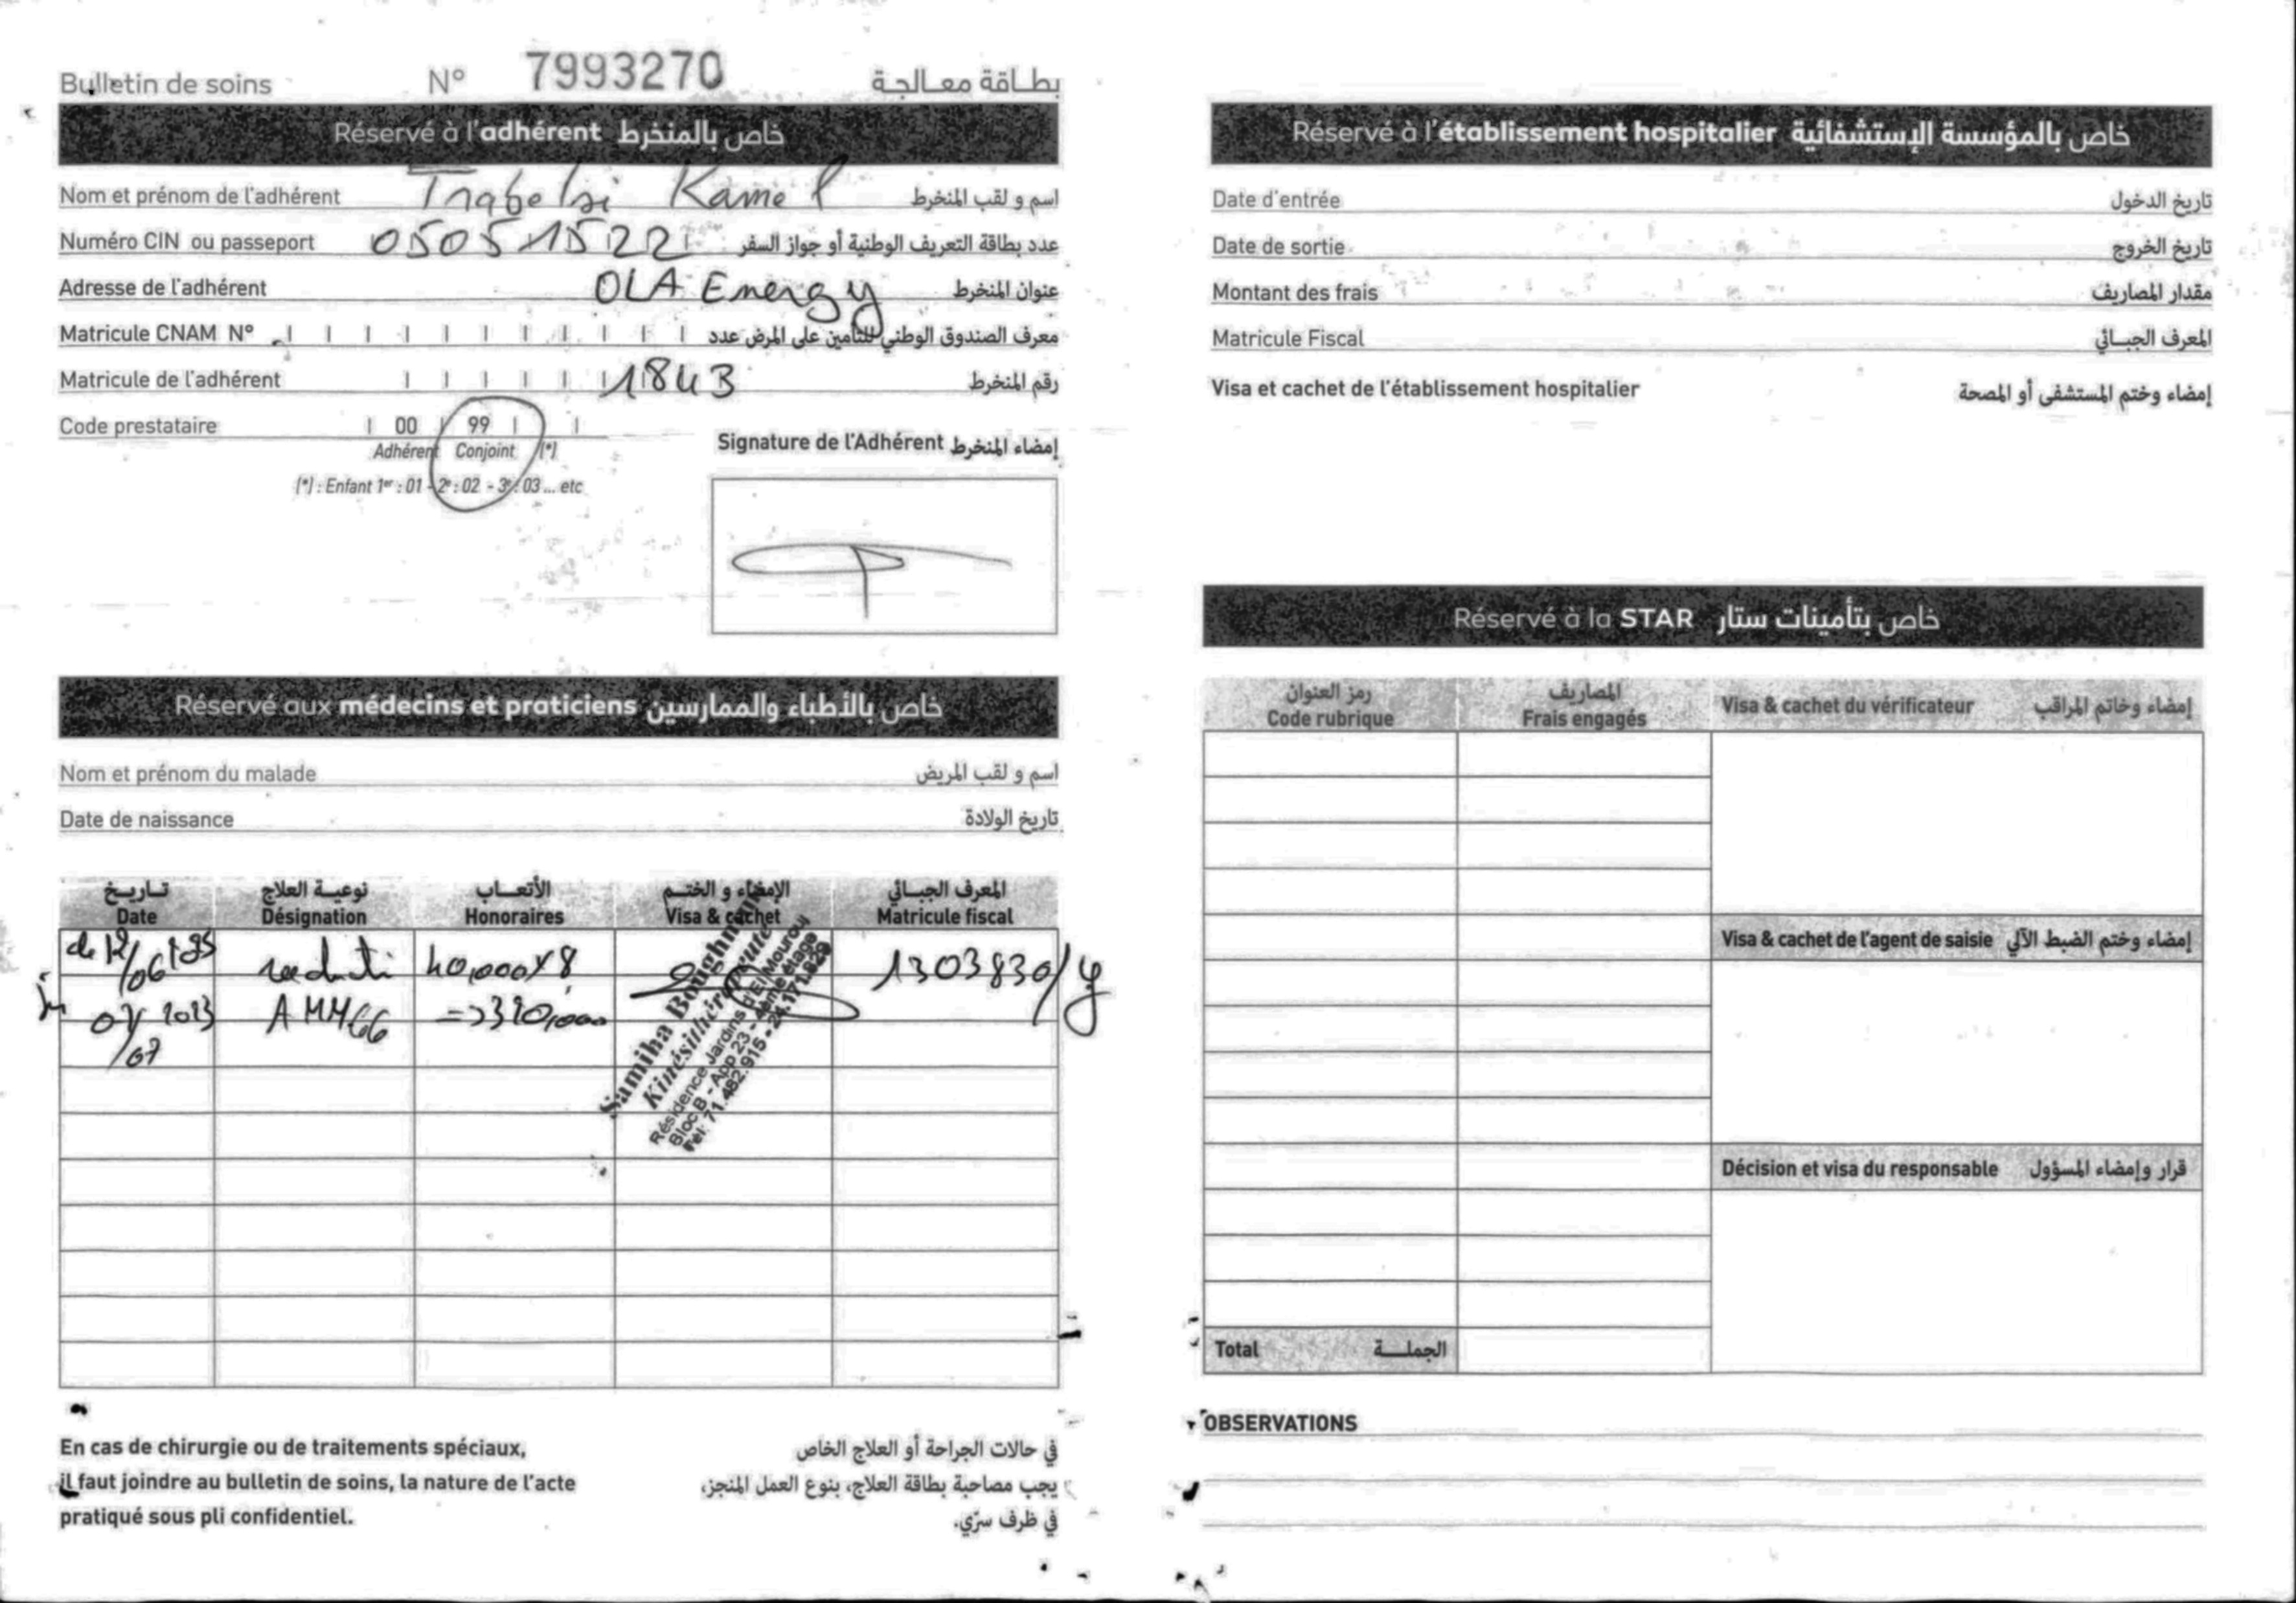 Bulletin de soins N° 7993270 بطاقة معالجة
Réservé à l'adhérent خاص بالمنخرط
Nom et prénom de l'adhérent Trabelsi Kamel اسم و لقب المنخرط
Numéro CIN ou passeport 05051522 عدد بطاقة التعريف الوطنية أو جواز السفر
Adresse de l'adhérent OLA Energy عنوان المنخرط
Matricule CNAM N° معرف الصندوق الوطني للتأمين على المرض عدد
Matricule de l'adhérent 1843 رقم المنخرط
Code prestataire 00 99
Adhérent Conjoint (*)
(*) : Enfant 1er : 01 - 2e : 02 - 3e : 03 ... etc
Signature de l'Adhérent إمضاء المنخرط
Réservé aux médecins et praticiens خاص بالأطباء والممارسين
Nom et prénom du malade اسم و لقب المريض
Date de naissance تاريخ الولادة
تاريخ نوعية العلاج الأتعاب الإمضاء و الختم المعرف الجبائي
Date Désignation Honoraires Visa & cachet Matricule fiscal
de 12/06 40,000 x 8 1303830/
07/07 2023 AMM66 => 320,000
Samiha
Kinésithérapeute
Résidence Jardins d'El Mourouj
Bloc B - App 23 - 4ème étage
Tél: 71.482.915 - 24.171.829
En cas de chirurgie ou de traitements spéciaux,
il faut joindre au bulletin de soins, la nature de l'acte
pratiqué sous pli confidentiel.
في حالات الجراحة أو العلاج الخاص
يجب مصاحبة بطاقة العلاج، بنوع العمل المنجز،
في ظرف سرّي.
Réservé à l'établissement hospitalier خاص بالمؤسسة الإستشفائية
Date d'entrée تاريخ الدخول
Date de sortie تاريخ الخروج
Montant des frais مقدار المصاريف
Matricule Fiscal المعرف الجبائي
Visa et cachet de l'établissement hospitalier إمضاء وختم المستشفى أو المصحة
Réservé à la STAR خاص بتأمينات ستار
رمز العنوان المصاريف
Code rubrique Frais engagés Visa & cachet du vérificateur إمضاء وخاتم المراقب
Visa & cachet de l'agent de saisie إمضاء وختم الضبط الآلي
Décision et visa du responsable قرار وإمضاء المسؤول
Total الجملة
OBSERVATIONS